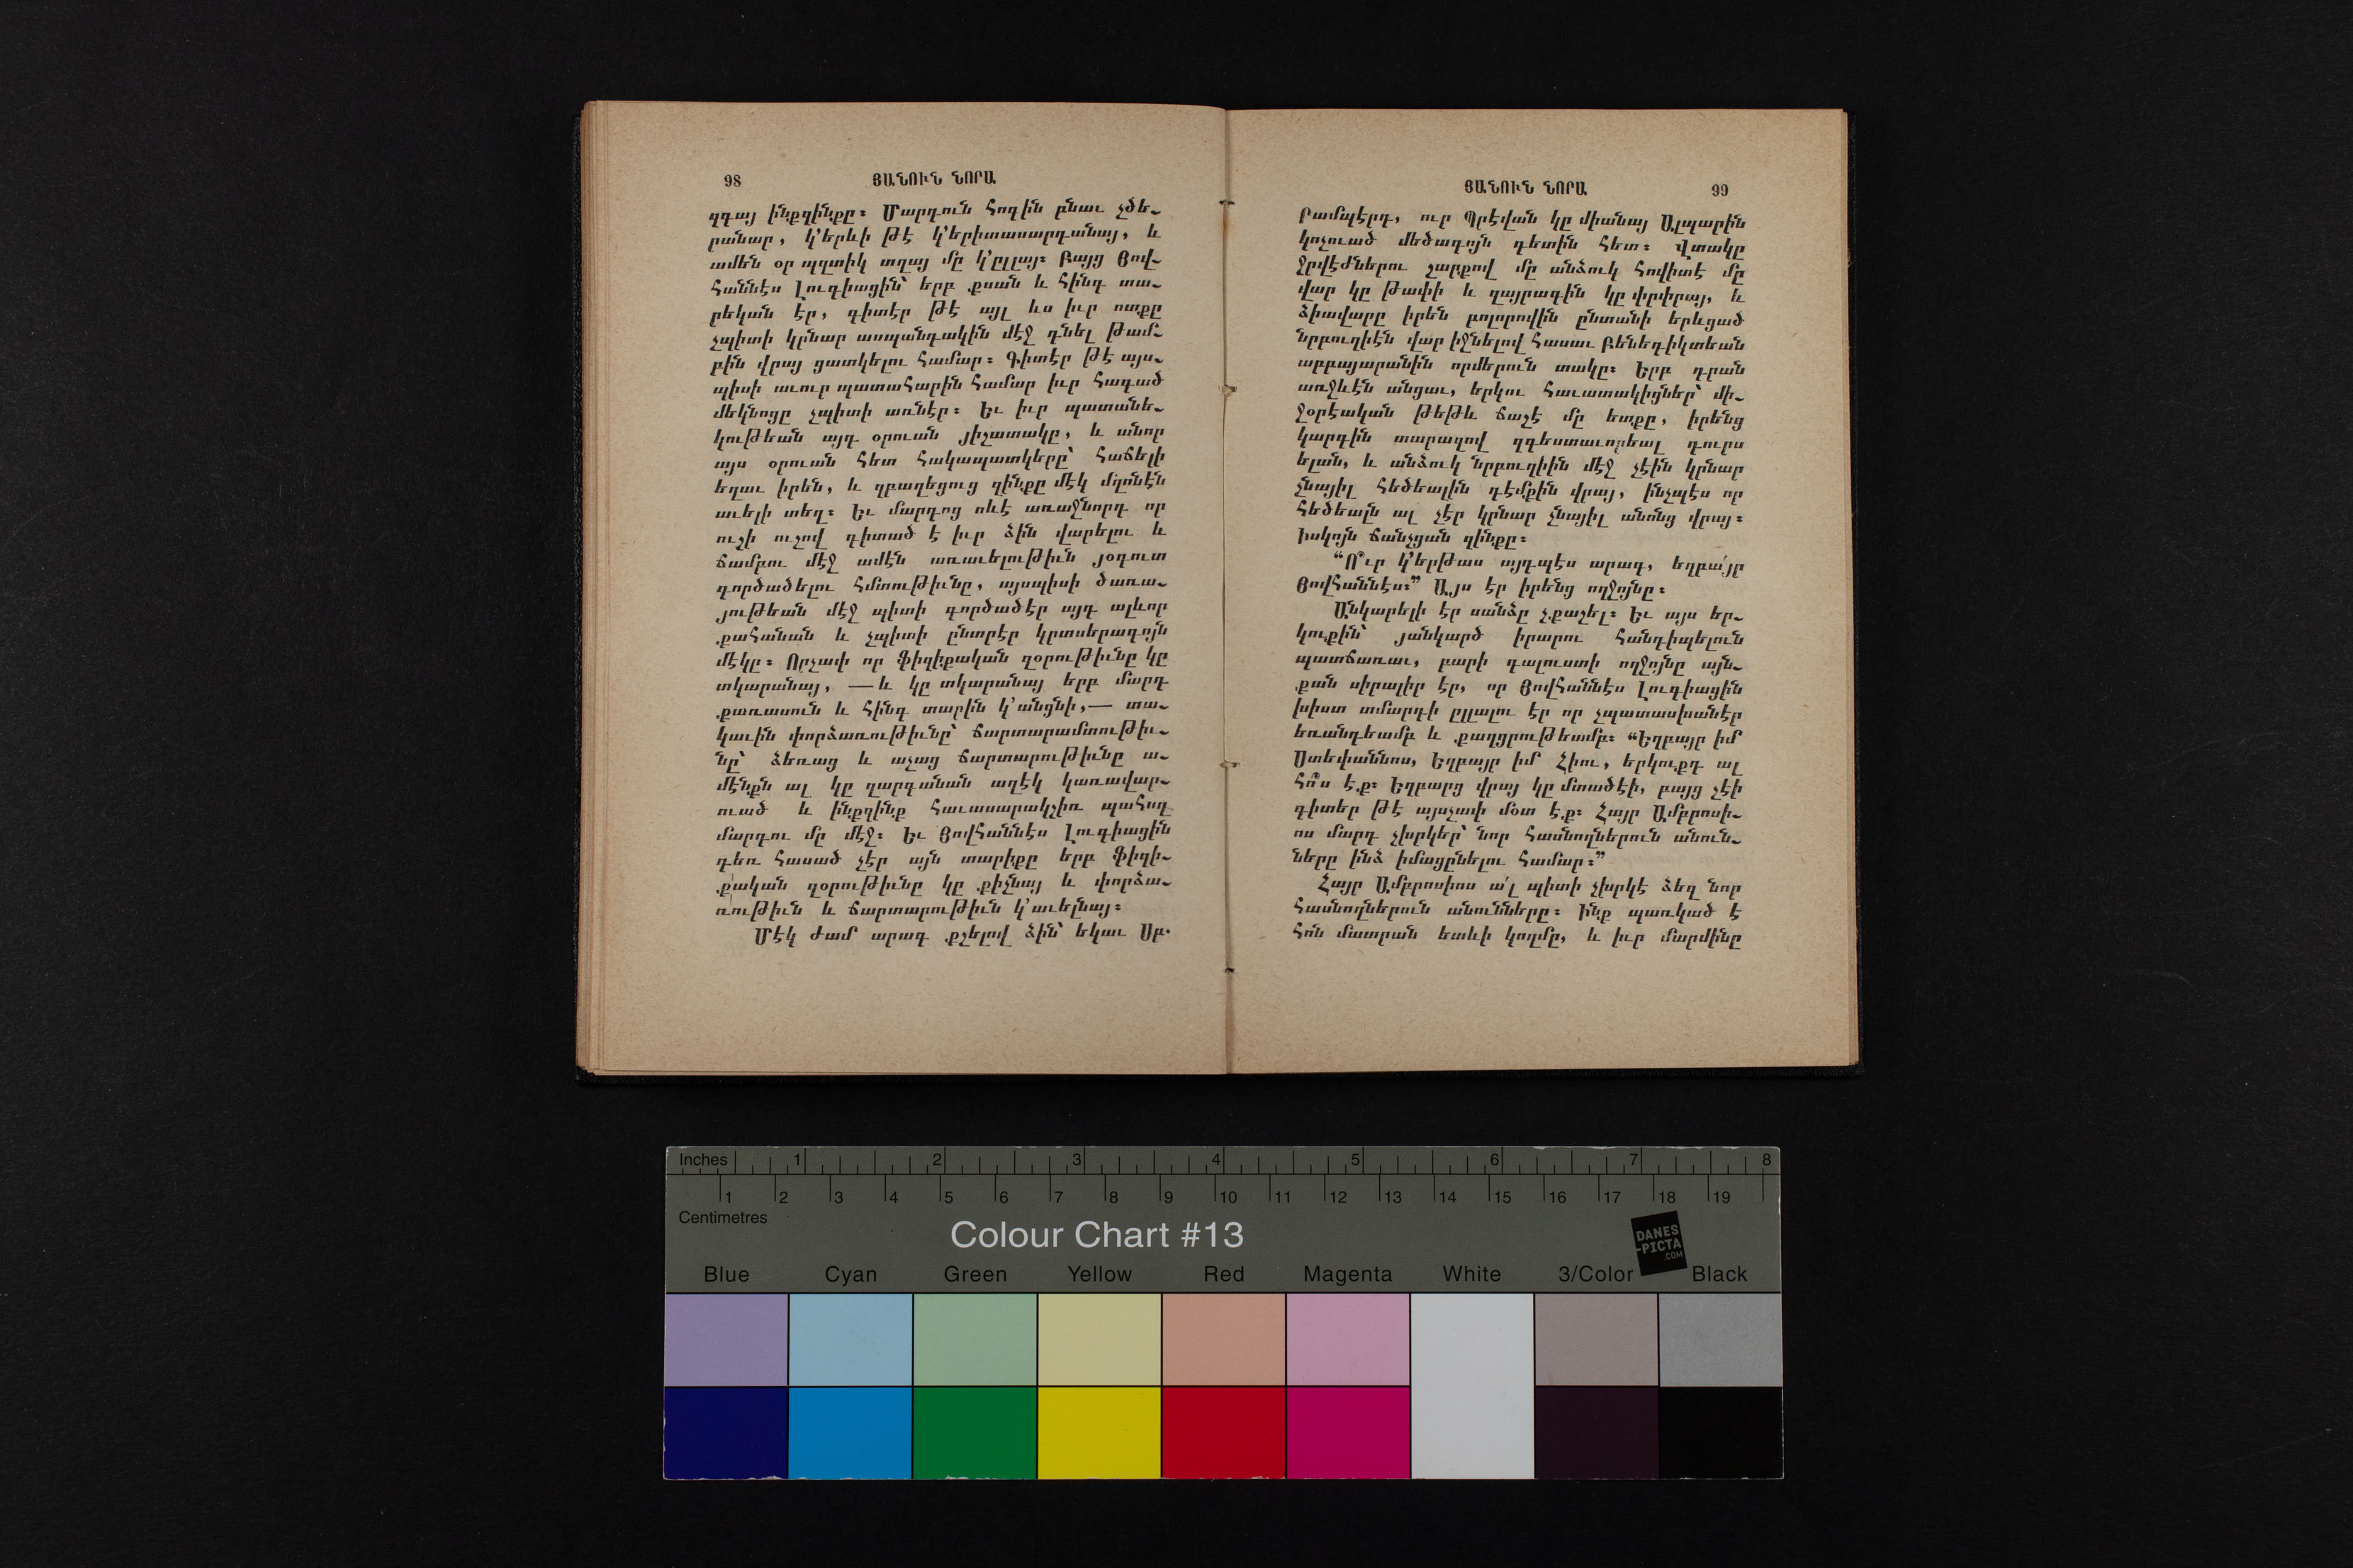 98
ՅԱՆՈՒՆ ՆՈՐԱ
զդայ ինքզինքը։ Մարդուն հոգին բնաւ չծե֊
րանար, կ՚երևի թէ կ՚երիտասարդանայ, և
ամեն օր պզտիկ տղայ մը կ՚ըլլայ։ Բայց Յով֊
հաննէս Լուգիացին՝ երբ քսան և հինգ տա֊
րեկան էր, գիտէր թէ այլ ևս իւր ոտքը
չպիտի կրնար ասպանդակին մէջ դնել թամ֊
բին վրայ ցատկելու համար։ Գիտէր թէ այս֊
պիսի աւուր պատահարին համար իւր հագած
մեկնոցը չպիտի առնէր։ Եւ իւր պատանե֊
կութեան այդ օրուան յիշատակը, և անոր
այս օրուան հետ հակապատկերը՝ հաճելի
եղաւ իրեն, և զբաղեցուց զինքը մէկ մղոնէն
աւելի տեղ։ Եւ մարդոց ոևէ առաջնորդ որ
ուշի ուշով դիտած է իւր ձին վարելու և
ճամբու մէջ ամէն առաւելութիւն յօգուտ
գործածելու հմտութիւնը, այսպիսի ծառա֊
յութեան մէջ պիտի գործածէր այդ ալևոր
քահանան և չպիտի ընտրէր կրտսերագոյն
մէկը։ Որչափ որ ֆիզիքական զօրութիւնը կը
տկարանայ, — և կը տկարանայ երբ մարդ
քառասուն և հինգ տարին կ՚անցնի,— տա֊
կաւին փորձառութիւնը՝ ճարտարամտութիւ֊
նը՝ ձեռաց և աչաց ճարտարութիւնը ա֊
մէնքն ալ կը զարգանան աղէկ կառավար֊
ուած և ինքզինք հաւասարակշիռ պահող
մարդու մը մէջ։ Եւ Յովհաննէս Լուգիացին
դեռ հասած չէր այն տարիքը երբ ֆիզի֊
քական զօրութիւնը կը քիչնայ և փորձա֊
ռութիւն և ճարտարութիւն կ՚աւելնայ։
Մէկ ժամ արագ քշելով ձին՝ եկաւ Սբ.
ՅԱՆՈՒՆ ՆՈՐԱ
99
Բամպէրդ, ուր Պրէվան կը միանայ Ալպարին
կոչուած մեծագոյն գետին հետ։ Վտակը
ջրվէժներու շարքով մը անձուկ հովիտէ մը
վար կը թափի և զայրագին կը փրփրայ, և
ձիավարը իրեն բոլորովին ընտանի երևցած
նրբուղիէն վար իջնելով հասաւ Բենեդիկտեան
աբբայարանին որմերուն տակը։ Երբ դրան
առջևէն անցաւ, երկու հաւատակիցներ՝ մի֊
ջօրէական թեթև ճաշէ մը ետքը, իրենց
կարգին տարազով զգեստաւորեալ դուրս
ելան, և անձուկ նրբուղիին մէջ չէին կրնար
չնայիլ հեծեալին դէմքին վրայ, ինչպէս որ
հեծեալն ալ չէր կրնար չնայիլ անոնց վրայ։
Իսկոյն ճանչցան զինքը։
“Ո՞ւր կ՚երթաս այդպէս արագ, եղբա՛յր
Յովհաննէս։” Այս էր իրենց ողջոյնը։
Անկարելի էր սանձը չքաշել։ Եւ այս եր֊
կուքին՝ յանկարծ իրարու հանդիպելուն
պատճառաւ, բարի գալուստի ողջոյնը այն֊
քան սիրալիր էր, որ Յովհաննէս Լուգիացին
խիստ տմարդի ըլլալու էր որ չպատասխանէր
եռանդեամբ և քաղցրութեամբ։ “Եղբայր իմ
Ստեփաննոս, Եղբայր իմ Հիու, երկուքդ ալ
հո՞ս է.ք։ Եղբարց վրայ կը մտածէի, բայց չէի
գիտեր թէ այսչափ մօտ է.ք։ Հայր Ամբրոսի֊
ոս մարդ չխրկեր՝ նոր հասնողներուն անուն֊
ները ինձ իմացընելու համար։”
Հայր Ամբրոսիոս ա՛լ պիտի չխրկէ ձեզ նոր
հասնողներուն անունները։ Ինք պառկած է
հոն մատրան ետևի կողմը, և իւր մարմինը
Inches 1 2 3 4 5 6 7 8
1 2 3 4 5 6 7 8 9 10 11 12 13 14 15 16 17 18 19
Centimetres
Colour Chart #13
DANES
-PICTA
.COM
Blue Cyan Green Yellow Red Magenta White 3/Color Black